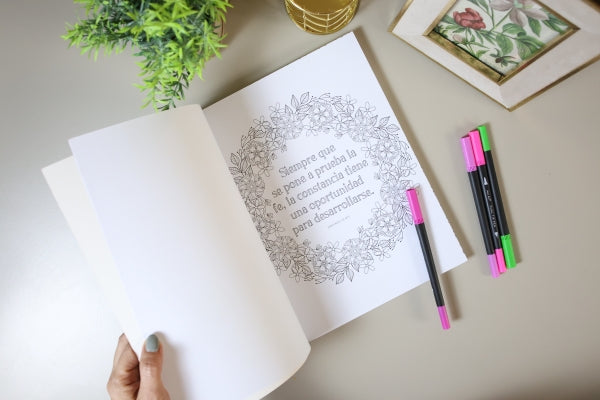 Siempre que
se pone a prueba la
fe, la constancia tiene
una oportunidad
para desarrollarse.